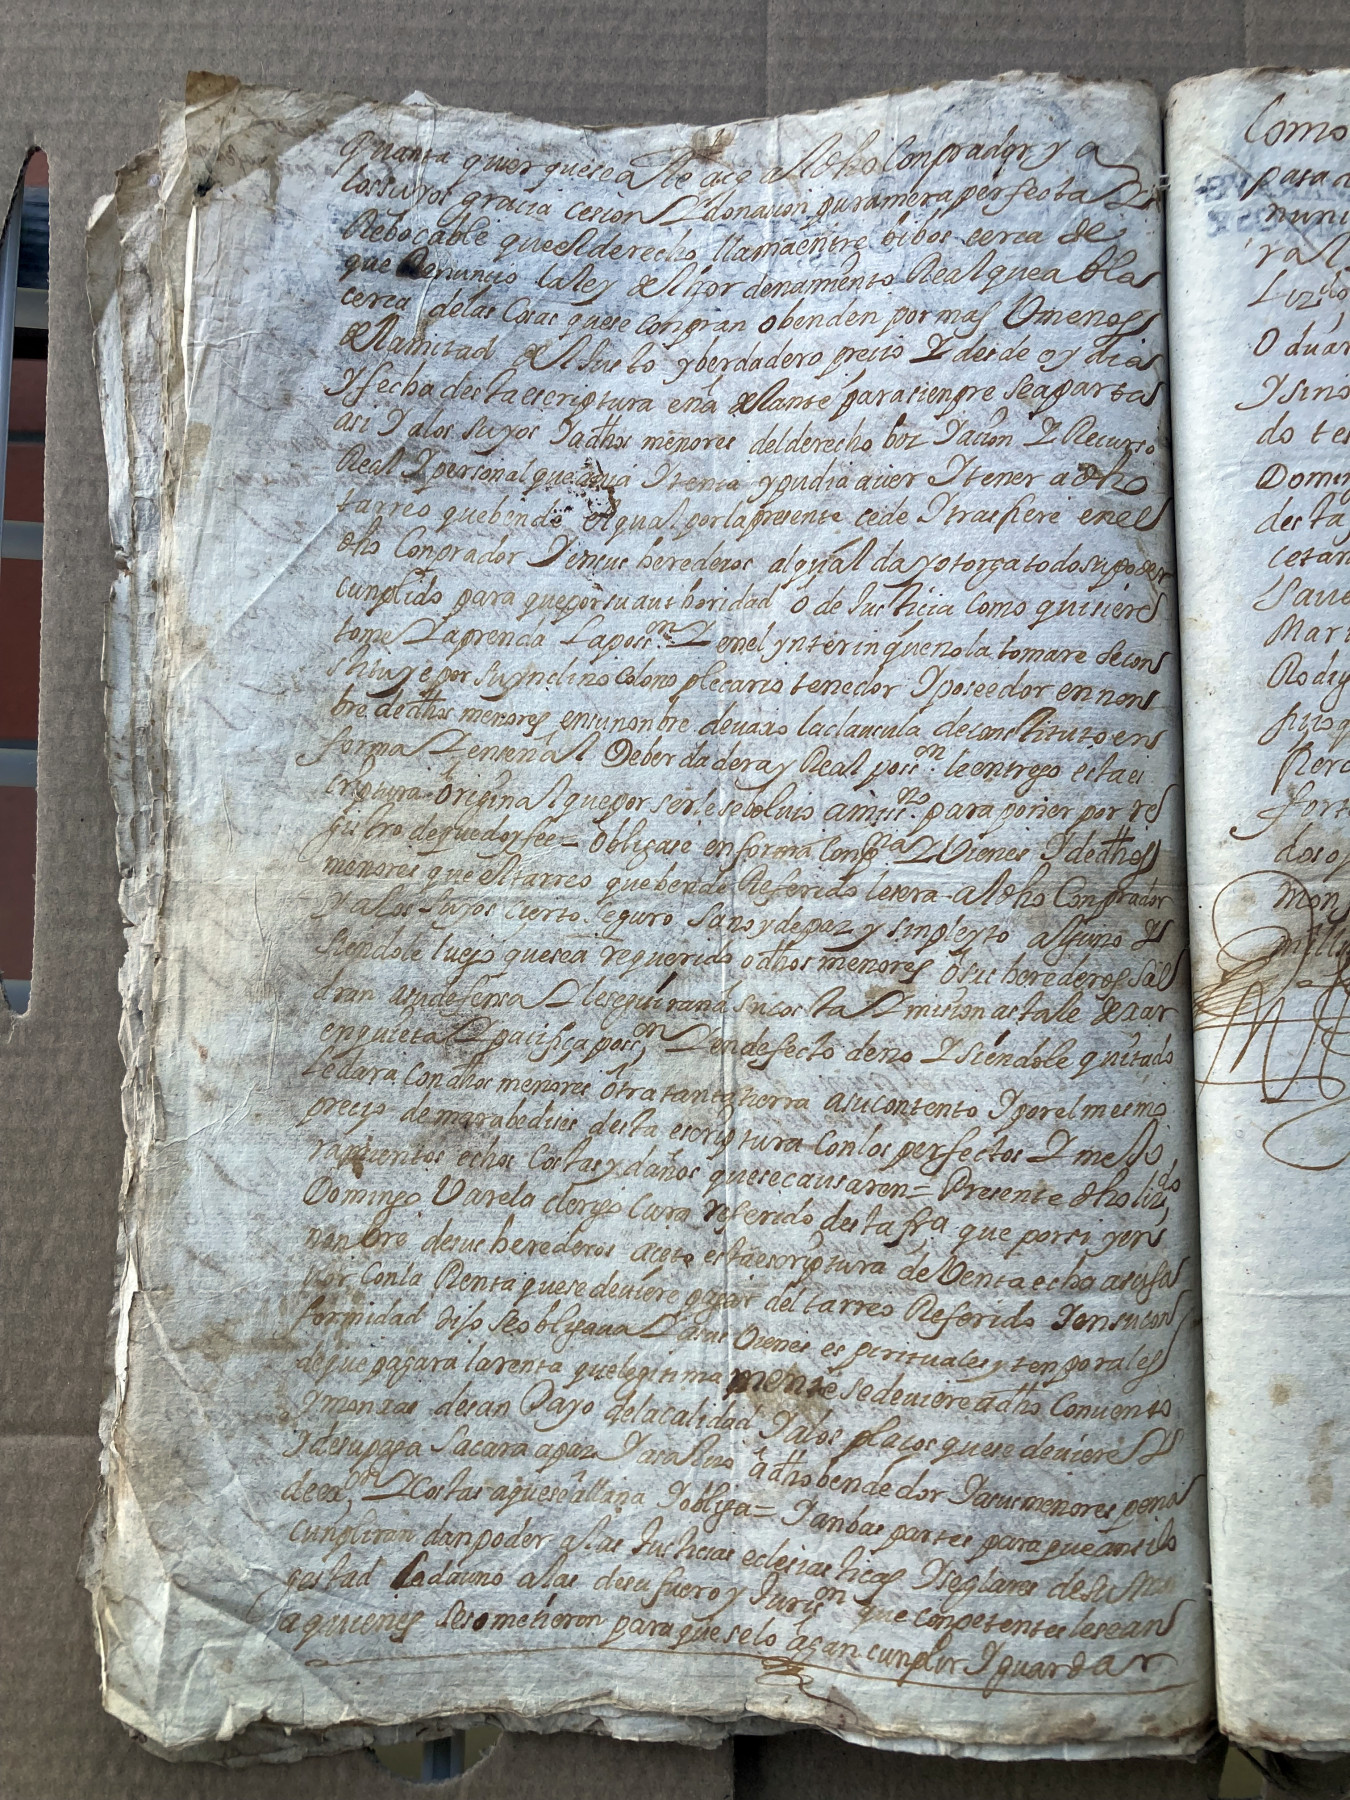 quanta quier que sea le ace al dho Conprador y a
los suyos gracia cesion Y donacion pura mera perfecta Y
Rebocable que el derecho llama entre bibos cerca de
que Renuncio la ley del hordenamento Real que abla
cerca de las Cosas que se conpran o benden por mas U menos
de la mitad del Justo y berdadero precio Y desde oy dia
Y fecha desta escriptura en adelante para sienpre se aparta
asi Y a los suyos Y a dhos menores del derecho boz Y acion Y Recurso
Real Y personal que avia Y tenia y pudia aver Y tener a dho
tarreo que bende el qual por la presente cede Y trasfiere en el
dho Conprador Y en sus herederos al qual da y otorga todo su poder
cunplido para que por su authoridad o de Justicia como quisiere
tome Y aprenda la poss.on Y en el ynterin que no la tomare se cons
stituye por su ynclino colono plecario tenedor Y poseedor en non
bre de dhos menores en su nonbre devaxo la clausula de constituto en
forma Y en señal de berdadera y Real poss.on le entrego esta es
criptura original que por ser le se bolvio a mi ss.no para poner por re
gistro de que doy fee = obligase en forma con p.na Y Vienes Y de dhos
menores que el tarreo que bende Referido le sera al dho Conprador
Y a los suyos cierto seguro sano y de paz y sin pleyto alguno Y
siendole luego que sea requerido o dhos menores o sus herederos sal
dran a su defensa Y le seguiran a su costa Y mision asta le dexar
en quieta Y pacifica poss.on Y en defecto de no Y siendole quitado
le dara con dhos menores otra tanta tierra a su contento Y por el mesmo
precio de marabedises desta escriptura con los perfectos Y mejo
ramientos echos costas y daños que se causaren = Presente dho liz.do
Domingo Varela clerigo cura referido desta fra. que por si y en
nonbre de sus herederos aceto esta escriptura de Venta echo a su fa
vor con la Renta que se deviere pagar del tarreo Referido Y en su con
formidad dijo se obligava Y a sus vienes espirituales y tenporales
de que pagara la renta que legitimamente se deviere a dho Convento
Y monxas de san Payo de la calidad Y a los plaços que se deviere
Y de su paga sacara a paz Y a salvo a dho bendedor Y a sus menores pena
de ex.on Y costas a que se allana Y obliga = Y anbas partes para que ansi lo
cunpliran dan poder a las Justicias eclesiasticas Y seglares de su Ma
gestad cada uno a las de su fuero y Juris.on que conpetentes le sean
a quienes se sometieron para que se lo agan cunplir Y guardar
Como
para
muni
ral
Liz.do
O duar
Y sino
do tes
Domin
desta
cetan
Save
Mar
Rodig
hijo
Pero
fort
dos o
mons